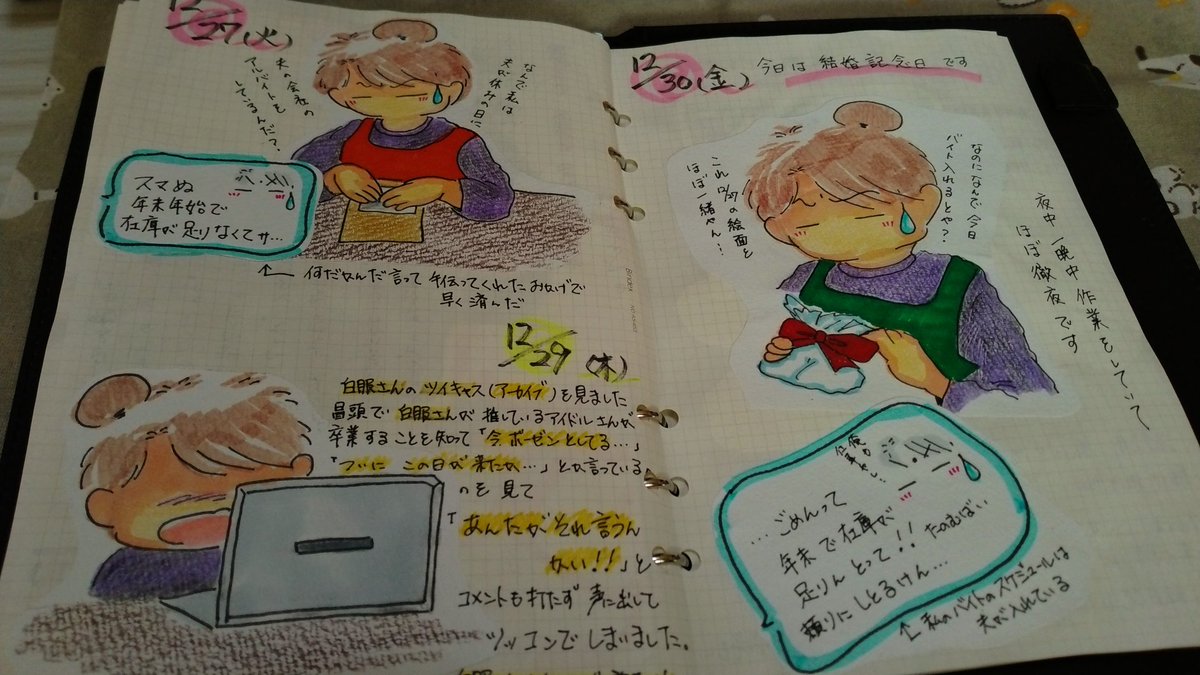 12/27(火)
なんで私は
夫が休みの日に
夫の会社の
アルバイトを
しているんだ?
スマぬ
年末年始で
在庫が足りなくてサ…
← 何だかんだ言って手伝ってくれたおかげで
早く済んだ
12/29(木)
白服さんのツイキャス(アーカイブ)を見ました
冒頭で白服さんが推しているアイドルさんが
卒業することを知って「今ボーゼンとしてる…」
「ついにこの日が来たか…」とか言っている
のを見て
「あんたがそれ言うん
かい!!」と
コメントも打たず声に出して
ツッコンでしまいました。
12/30(金)
今日は結婚記念日です
なのになんで今日
バイト入れるとや?
これ12/27の絵面と
ほぼ一緒やん…!
夜中一晩中作業をしていて
ほぼ徹夜です
…ごめんって
年末で在庫が
足りんとって!!たのむばい…
頼りにしとるけん…
← 私のバイトのスケジュールは
夫が入れている